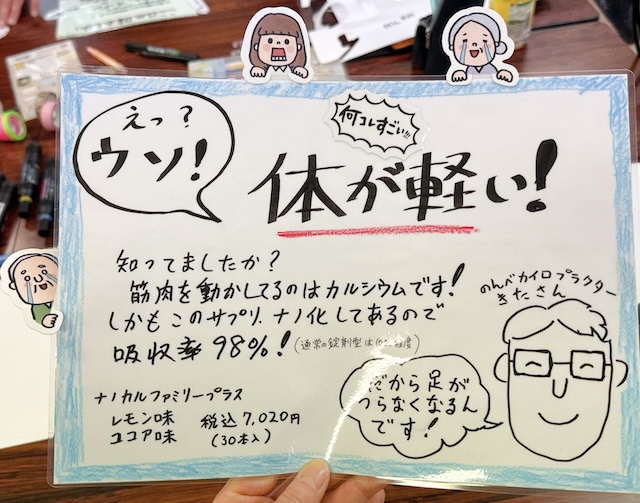 えっ？
ウソ！
何コレすごい!!
体が軽い！
知ってましたか？
筋肉を動かしてるのはカルシウムです！
しかもこのサプリ、ナノ化してあるので
吸収率98%！
(通常の錠剤型は
ナノカルファミリープラス
レモン味 税込7,020円
ココア味 (30本入)
のんべカイロプラクター
きたさん
だから足が
つらなくなるん
です！